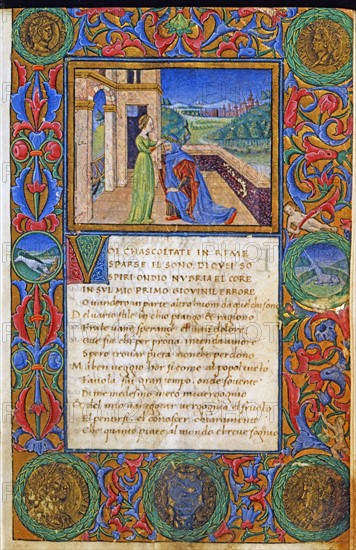 VOI CHASCOLTATE IN RIME
SPARSE IL SONO DI QVEI SO
SPIRI ONDIO NVDRIA EL CORE
IN SVL MIO PRIMO GIOVINIL ERRORE
Quandero in parte altro huom da quel chi sono
Del vario stile in chio piango & ragiono
Fra le vane speranze el van dolore
Oue sia chi per proua intenda amore
Spero trouar pieta non che perdono
Ma ben veggio hor si come al popol tutto
Fauola fui gran tempo onde souente
Di me medesmo meco mi uergogno
Et del mio uaneggiar uergogna el fructo
El pentirsi el conoscer chiaramente
Che quanto piace al mondo e breue sogno